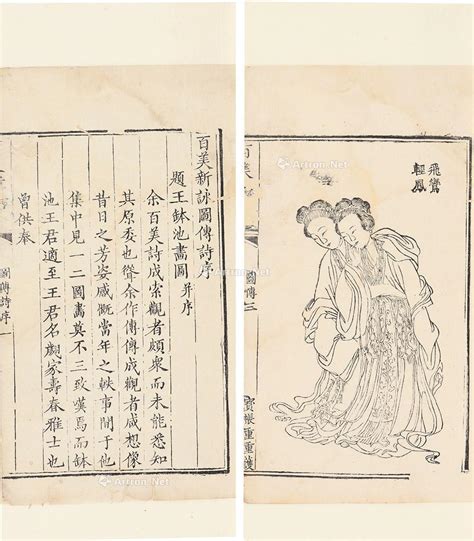 百美新詠圖傳詩序
題王鉢池畫圖 并序
余百美詩成索觀者頗衆而未能悉知
其原委也聳余作傳傳成觀者咸想像
昔日之芳姿感慨當年之軼事間于他
集中見一二圖畫莫不三致嘆焉而鉢
池王君適至王君名翽家壽春雅士也
曾供奉
圖傳詩序 一
飛鸞
輕鳳
百美
圖傳 二
寶帳重重護
Artron.Net
Artron.Net
Artron.Net
Artron.Net